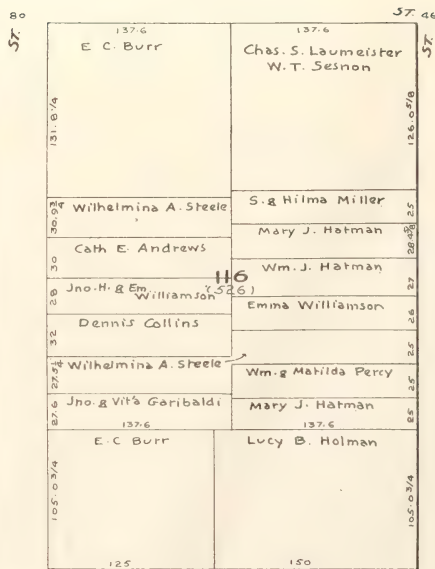 80
ST. 46
ST.
ST.
137.6
137.6
E. C. Burr
Chas. S. Laumeister
W. T. Sesnon
131.8 1/4
126.0 5/8
30.9 3/4
Wilhelmina A. Steele
S. & Hilma Miller
25
Mary J. Hatman
28.4 3/8
Cath E. Andrews
30
116
(526)
Wm. J. Hatman
27
28
Jno. H. & Em.
Williamson
Emma Williamson
26
Dennis Collins
32
25
27.5 1/4
Wilhelmina A. Steele
Wm. & Matilda Percy
25
27.6
Jno. & Vit'a Garibaldi
Mary J. Hatman
25
137.6
137.6
E. C Burr
Lucy B. Holman
105.0 3/4
105.0 3/4
125
150